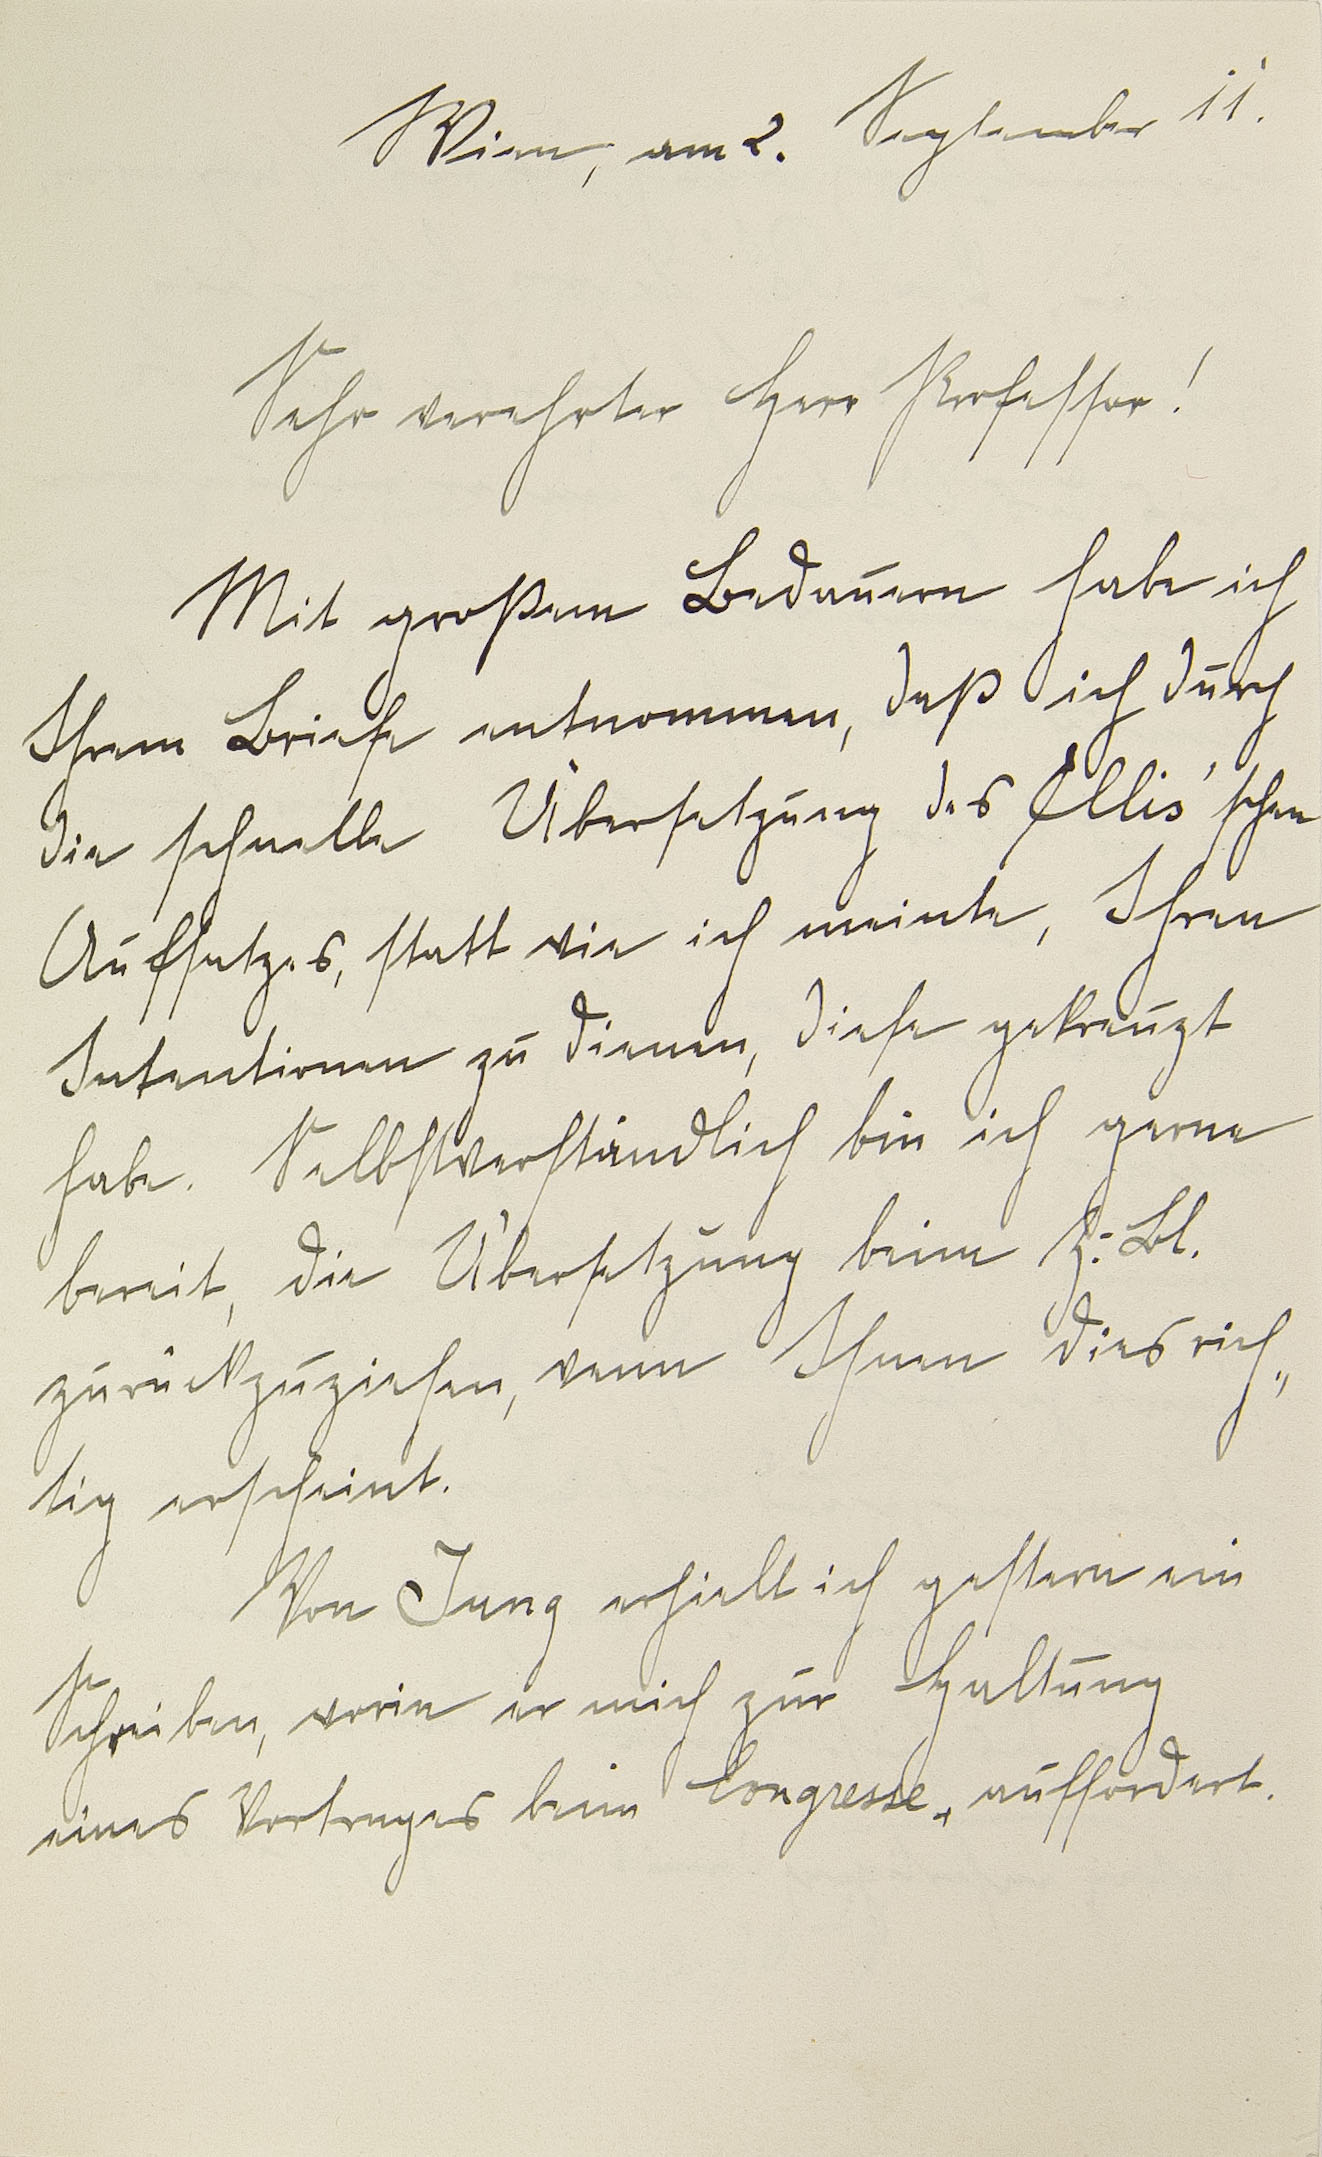 Wien, am 2. September 11.
Sehr verehrter Herr Professor!
Mit großem Bedauern habe ich
Ihrem Briefe entnommen, daß ich durch
die schnelle Übersetzung des Ellis'schen
Aufsatzes, statt wie ich meinte, Ihren
Intentionen zu dienen, diese gekreuzt
habe. Selbstverständlich bin ich gerne
bereit, die Übersetzung beim Z.-Bl.
zurückzuziehen, wenn Ihnen dies rich„
tig erscheint.
Von Jung erhielt ich gestern ein
Schreiben, worin er mich zur Haltung
eines Vortrages beim Congresse auffordert.